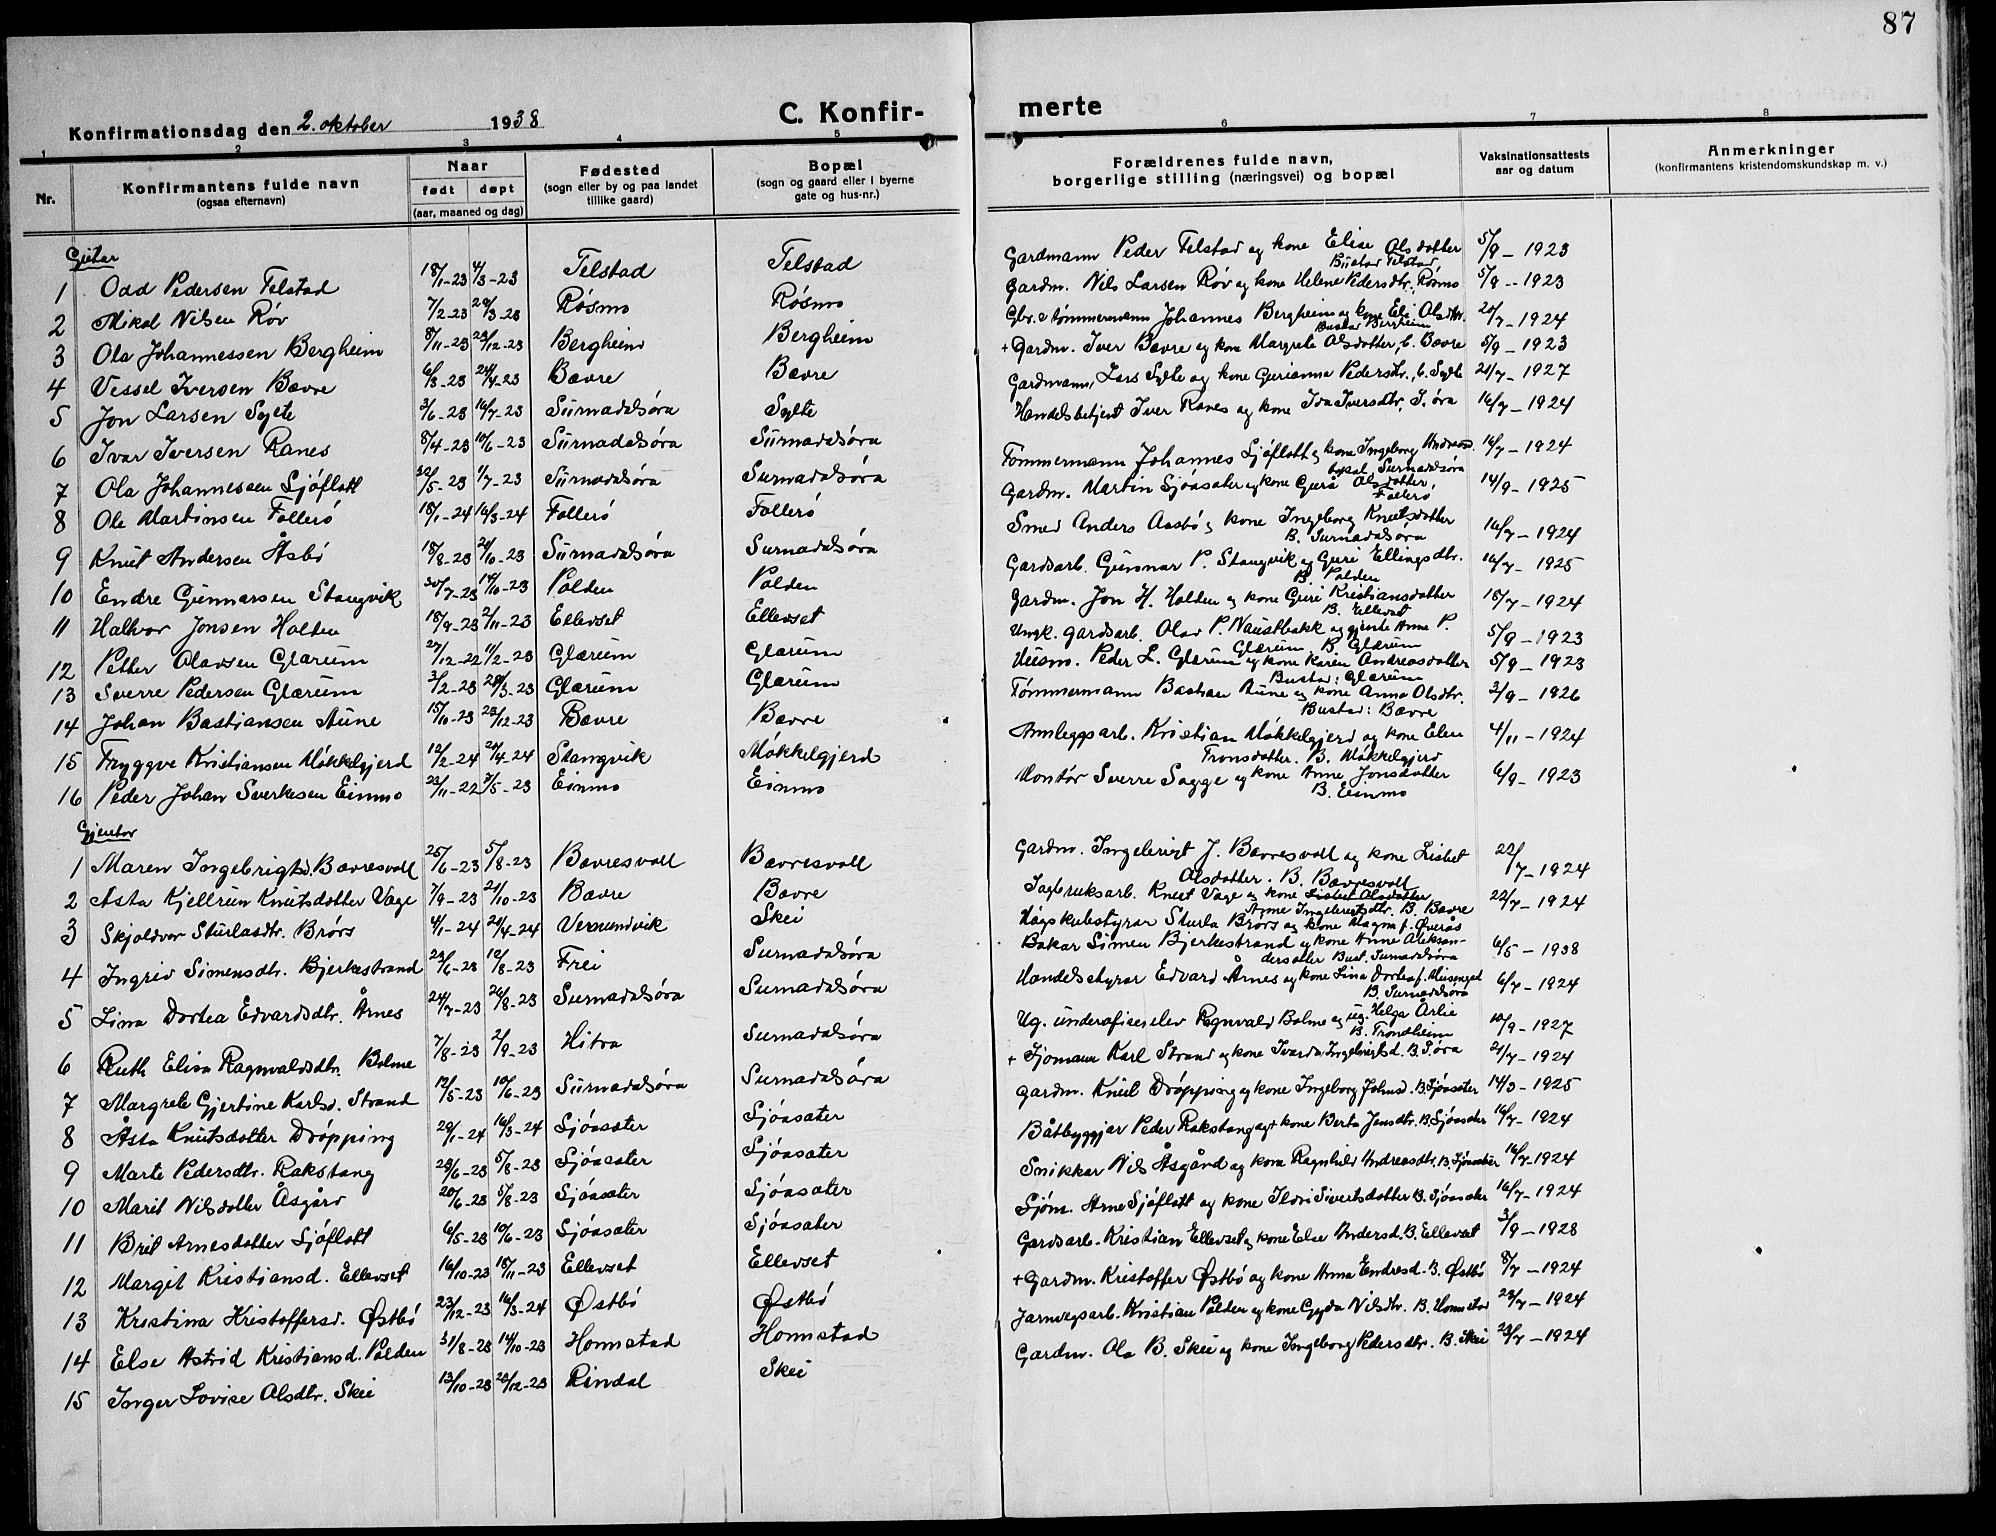 87
Konfirmationsdag den 2. oktober 1938
C. Konfir-
merte
1 2 3 4 5 6 7 8
Nr.
Konfirmantens fulde navn
(ogsaa efternavn)
Naar
født døpt
(aar, maaned og dag)
Fødested
(sogn eller by og paa landet
tillike gaard)
Bopæl
(sogn og gaard eller i byerne
gate og hus-nr.)
Forældrenes fulde navn,
borgerlige stilling (næringsvei) og bopæl
Vaksinationsattests
aar og datum
Anmerkninger
(konfirmantens kristendomskundskap m. v.)
Gutar
1 Odd Pedersen Telstad 18/1-23 4/3-23 Telstad Telstad Gardmann Peder Telstad og kone Elise Olsdotter 5/9 - 1923
Bustad Telstad
2 Mikal Nilsen Röv 7/2-23 Røsmo Røsmo Gardm. Nils Larsen Røv og kone Helene Pedersdtr. Røsmo 5/9 - 1923
3 Ola Johannessen Bergheim 8/11-23 23/12-23 Bergheim Bergheim Gbr. & tømmermann Johannes Bergheim og kone Eli Olsdtr. - 1924
Bustad Bergheim
4 Vessel Iversen Bævre 6/3-23 24/4-23 Bævre Bævre + Gardm. Iver Bævre og kone Margrete Olsdotter, b. Bævre 5/9 - 1923
5 Jon Larsen Sylte 3/6-23 16/7-23 Surnadalsøra Sylte Gardmann, Lars Sylte og kone Gurianna Pedersdtr., b. Sylte 21/7 - 1927
6 Ivar Iversen Ranes 8/4-23 10/6-23 Surnadalsøra Surnadalsøra Handelsbetjent Iver Ranes og kone Ida Iversdtr. S. øra 16/7 - 1924
7 Ola Johannessen Sjöflott 30/5-23 1/7-23 Surnadalsöra Surnadalsöra Tømmermann Johannes Sjöflott og kone Ingeborg Andreasd. 16/7 - 1924
bopæl Surnadalsøra
8 Ole Martinsen Follerö 18/1-24 16/3-24 Follerö Follerö Gardm. Martin Sjöasæter og kone Guri Olsdotter, 14/9 - 1925
Follerö
9 Knut Andersen Åsbö 18/8-23 21/10-23 Surnadalsöra Surnadalsöra Smed Anders Aasbö og kone Ingeborg Knutsdotter 16/7 - 1924
B. Surnadalsøra
10 Endre Gunnarsen Stangvik 30/7-23 14/10-23 Polden Polden Gardsarb. Gunnar P. Stangvik og Guri Ellingsdtr. 16/7 - 1925
B. Polden
11 Halvor Jonsen Holten 18/9-23 2/11-23 Ellevset Ellevset Gardm. Jon H. Holten og kone Guri Kristiansdotter 18/7 - 1924
B. Ellevset
12 Petter Olavsen Glærum 27/12-22 11/2-23 Glærum Glærum Ungk. gardsarb. Olav P. Naustbakk og gjente Anne P. 5/9 - 1923
Glærum B. Glærum
13 Sverre Pedersen Glærum 3/2-23 Glærum Glærum Husm. Peder L. Glærum og kone Karen Andreasdotter 5/9 - 1923
Bustad: Glærum
14 Johan Bastiansen Aune 15/10-23 23/12-23 Bævre Bævre Tømmermann Bastian Aune og kone Anna Olsdtr. 2/9 - 1926
Bustad: Bævre
15 Tryggve Kristiansen Mökkelgjerd 12/2-24 21/4-24 Stangvik Mökkelgjerd Anleggsarb. Kristian Mökkelgjerd og kone Elen 4/11 - 1924
Tronsdotter. B. Mökkelgjerd
16 Peder Johan Sverkesen Einmo 22/11-22 3/5-23 Einmo Einmo Montör Sverre Sagge og kone Anne Jonsdotter 6/9 - 1923
B. Einmo
Gjentor
1 Maren Ingebrigtsd. Bævresvoll 25/6-23 5/8-23 Bævresvoll Bævresvoll Gardm. Ingebrigt J. Bævresvoll og kone Lisbet 22/7 - 1924
Olsdotter. B. Bævresvoll
2 Asta Kjellrun Knutsdotter Vage 7/9-23 21/10-23 Bævre Bævre Sagbruksarb. Knut Vage og kone Lisbet Olsdotter 22/7 - 1924
Anne Ingebrigtsdtr. B. Bævre
3 Skjoldvor Sturlasdtr. Brörs 4/1-24 21/4-24 Vernundvik Skei Høgskulestyrar Sturla Brörs og kone Magna f. Øverås
4 Ingrid Simensdtr. Bjerkestrand 23/6-23 12/8-23 Frei Surnadalsöra Bakar Simen Bjerkestrand og kone Anne Aleksan- 6/5 - 1938
dersdtter Bust. Surnadalsöra
5 Lina Dortea Edvardsdtr. Årnes 24/7-23 26/8-23 Surnadalsöra Surnadalsöra Handelsstyrar Edvard Årnes og kone Lina Dortea f. 6/7 - 1924
B. Surnadalsöra
6 Ruth Elisa Ragnvaldsdtr. Bolme 7/8-23 2/9-23 Hitra Surnadalsöra Ug. underofiserelev Ragnvald Bolme og ug. Helga Årlie 10/9 - 1927
B. Trondheim
7 Margrete Gjertine Karlsd. Strand 12/5-23 10/6-23 Surnadalsöra Surnadalsöra + Sjömann Karl Strand og kone Ivarda Ingebrigtsd. B. S. öra 21/7 - 1924
8 Åsta Knutsdotter Dröpping 20/1-24 16/3-24 Sjöasæter Sjöasæter Gardm. Knut Dröpping og kone Ingeborg Johnsd. B. Sjöasæter 14/9 - 1925
9 Marte Pedersdtr. Rakstang 23/6-23 5/8-23 Sjöasæter Sjöasæter Båtbyggjar Peder Rakstang og kone Berta Jonsdtr. B. Sjöasæter 16/7 - 1924
10 Marit Nilsdotter Åsgård 20/6-23 5/8-23 Sjöasæter Sjöasæter Snikkar Nils Åsgård og kone Ragnhild Andreasdtr. B. Sjöasæter 16/7 - 1924
11 Brit Arnesdotter Sjöflott 6/5-23 10/6-23 Sjöasæter Sjöasæter Sjöm. Arne Sjöflott og kone Ildri Sivertsdotter B. Sjöasæter 16/7 - 1924
12 Margit Kristiansd. Ellevset 16/10-23 18/11-23 Ellevset Ellevset Gardsarb. Kristian Ellevset og kone Else Andersd. B. Ellevset 3/9 - 1928
13 Kristina Kristoffersd. Østbö 23/12-23 16/3-24 Østbö Østbö + Gardm. Kristoffer Østbö og kone Anna Endresd. B. Østbö 8/7 - 1924
14 Else Astrid Kristiansd. Polden 31/8-23 14/10-23 Honnstad Honnstad Jarnvegsarb. Kristian Polden og kone Gyda Nilsdtr. B. Honnstad - 1924
15 Inger Lovise Olsdtr. Skei 13/10-23 Rindal Skei Gardm. Ola B. Skei og kone Ingeborg Pedersdtr. B. Skei 23/7 - 1924